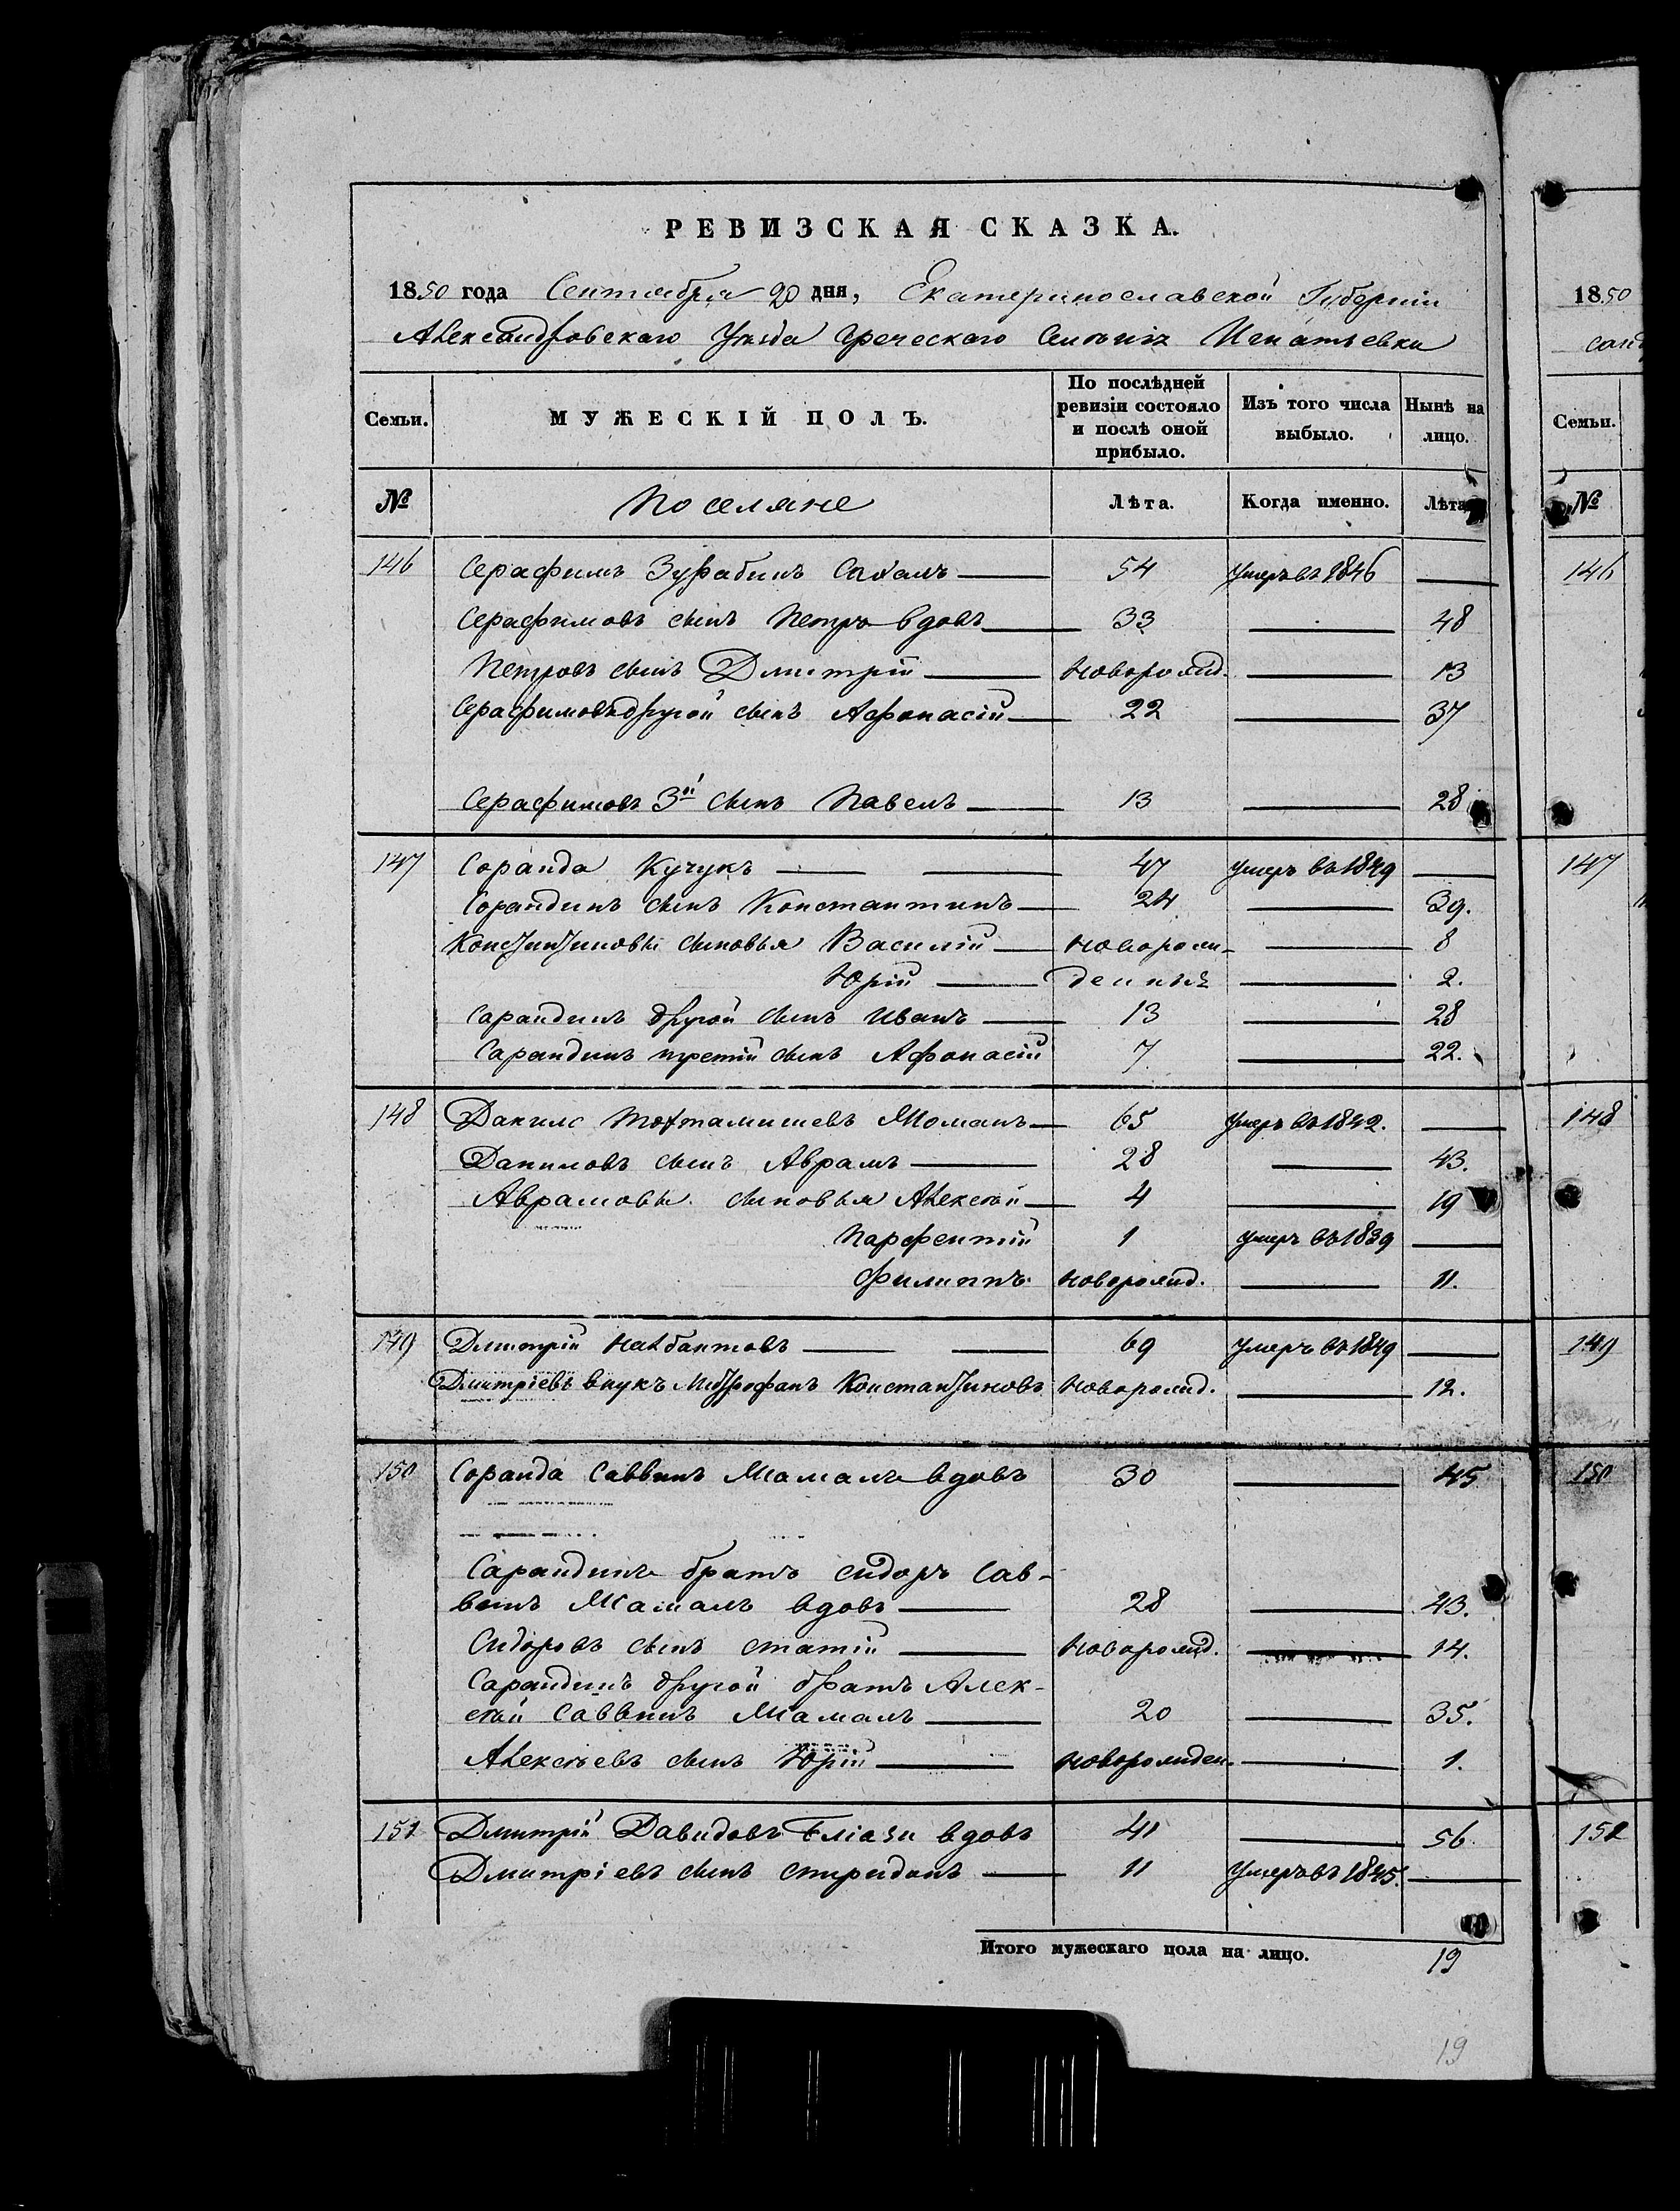 РЕВИЗСКАЯ СКАЗКА.
1850 года Сентября 20 дня, Екатеринославской Губернии
Александровскаго Уѣзда Греческаго Селенія Игнатьевки
Семьи. МУЖЕСКІЙ ПОЛЪ. По послѣдней ревизіи состояло и послѣ оной прибыло. Изъ того числа выбыло. Нынѣ на лицо.
№ Поселяне Лѣта. Когда именно. Лѣта
146 Серафимъ Зурабинъ 54 умеръ въ 1846 —
Серафимовъ сынъ Петръ вдовъ 33 — 48
Петровъ сынъ Дмитрій новорожд. — 13
Серафимовъ другой сынъ Афонасій 22 — 37
Серафимовъ 3й сынъ Павелъ 13 — 28
147 Соранда Кучукъ 47 умеръ въ 1849 —
Сорандинъ сынъ Константинъ 24 — 39.
Константиновы сыновья Василій новорож- — 8
Юрій денныѣ — 2.
Сарандинъ другой сынъ Иванъ 13 — 28
Сарандинъ третій сынъ Афонасій 7. — 22.
148 Данило Тохтамишевъ Моманъ 65 умеръ въ 1842. —
Даниловъ сынъ Аврамъ 28 — 43.
Аврамовы сыновья Алексѣй 4 — 19
Парфентій 1 умеръ въ 1839 —
Филиппъ новорожд. — 11.
149 Дмитрій Налбантовъ 69 умеръ въ 1849 —
Дмитріевъ внукъ Митрофанъ Константиновъ новорожд. — 12.
150 Соранда Саввинъ Мамалъ вдовъ 30 — 45
Сарандинъ братъ Сидоръ Сав-
винъ Мамалъ вдовъ 28 — 43.
Сидоровъ сынъ Статій новорожд. — 14.
Сарандинъ другой братъ Алек-
сѣй Саввинъ Мамалъ 20 — 35.
Алексѣевъ сынъ Юрій новорожден. — 1.
151 Дмитрій Давидовъ вдовъ 41 — 56
Дмитріевъ сынъ Спиридонъ 11 умеръ въ 1845. —
Итого мужескаго пола на лицо. 19
19
1850
Семьи.
№
146
147
148
149
150
151